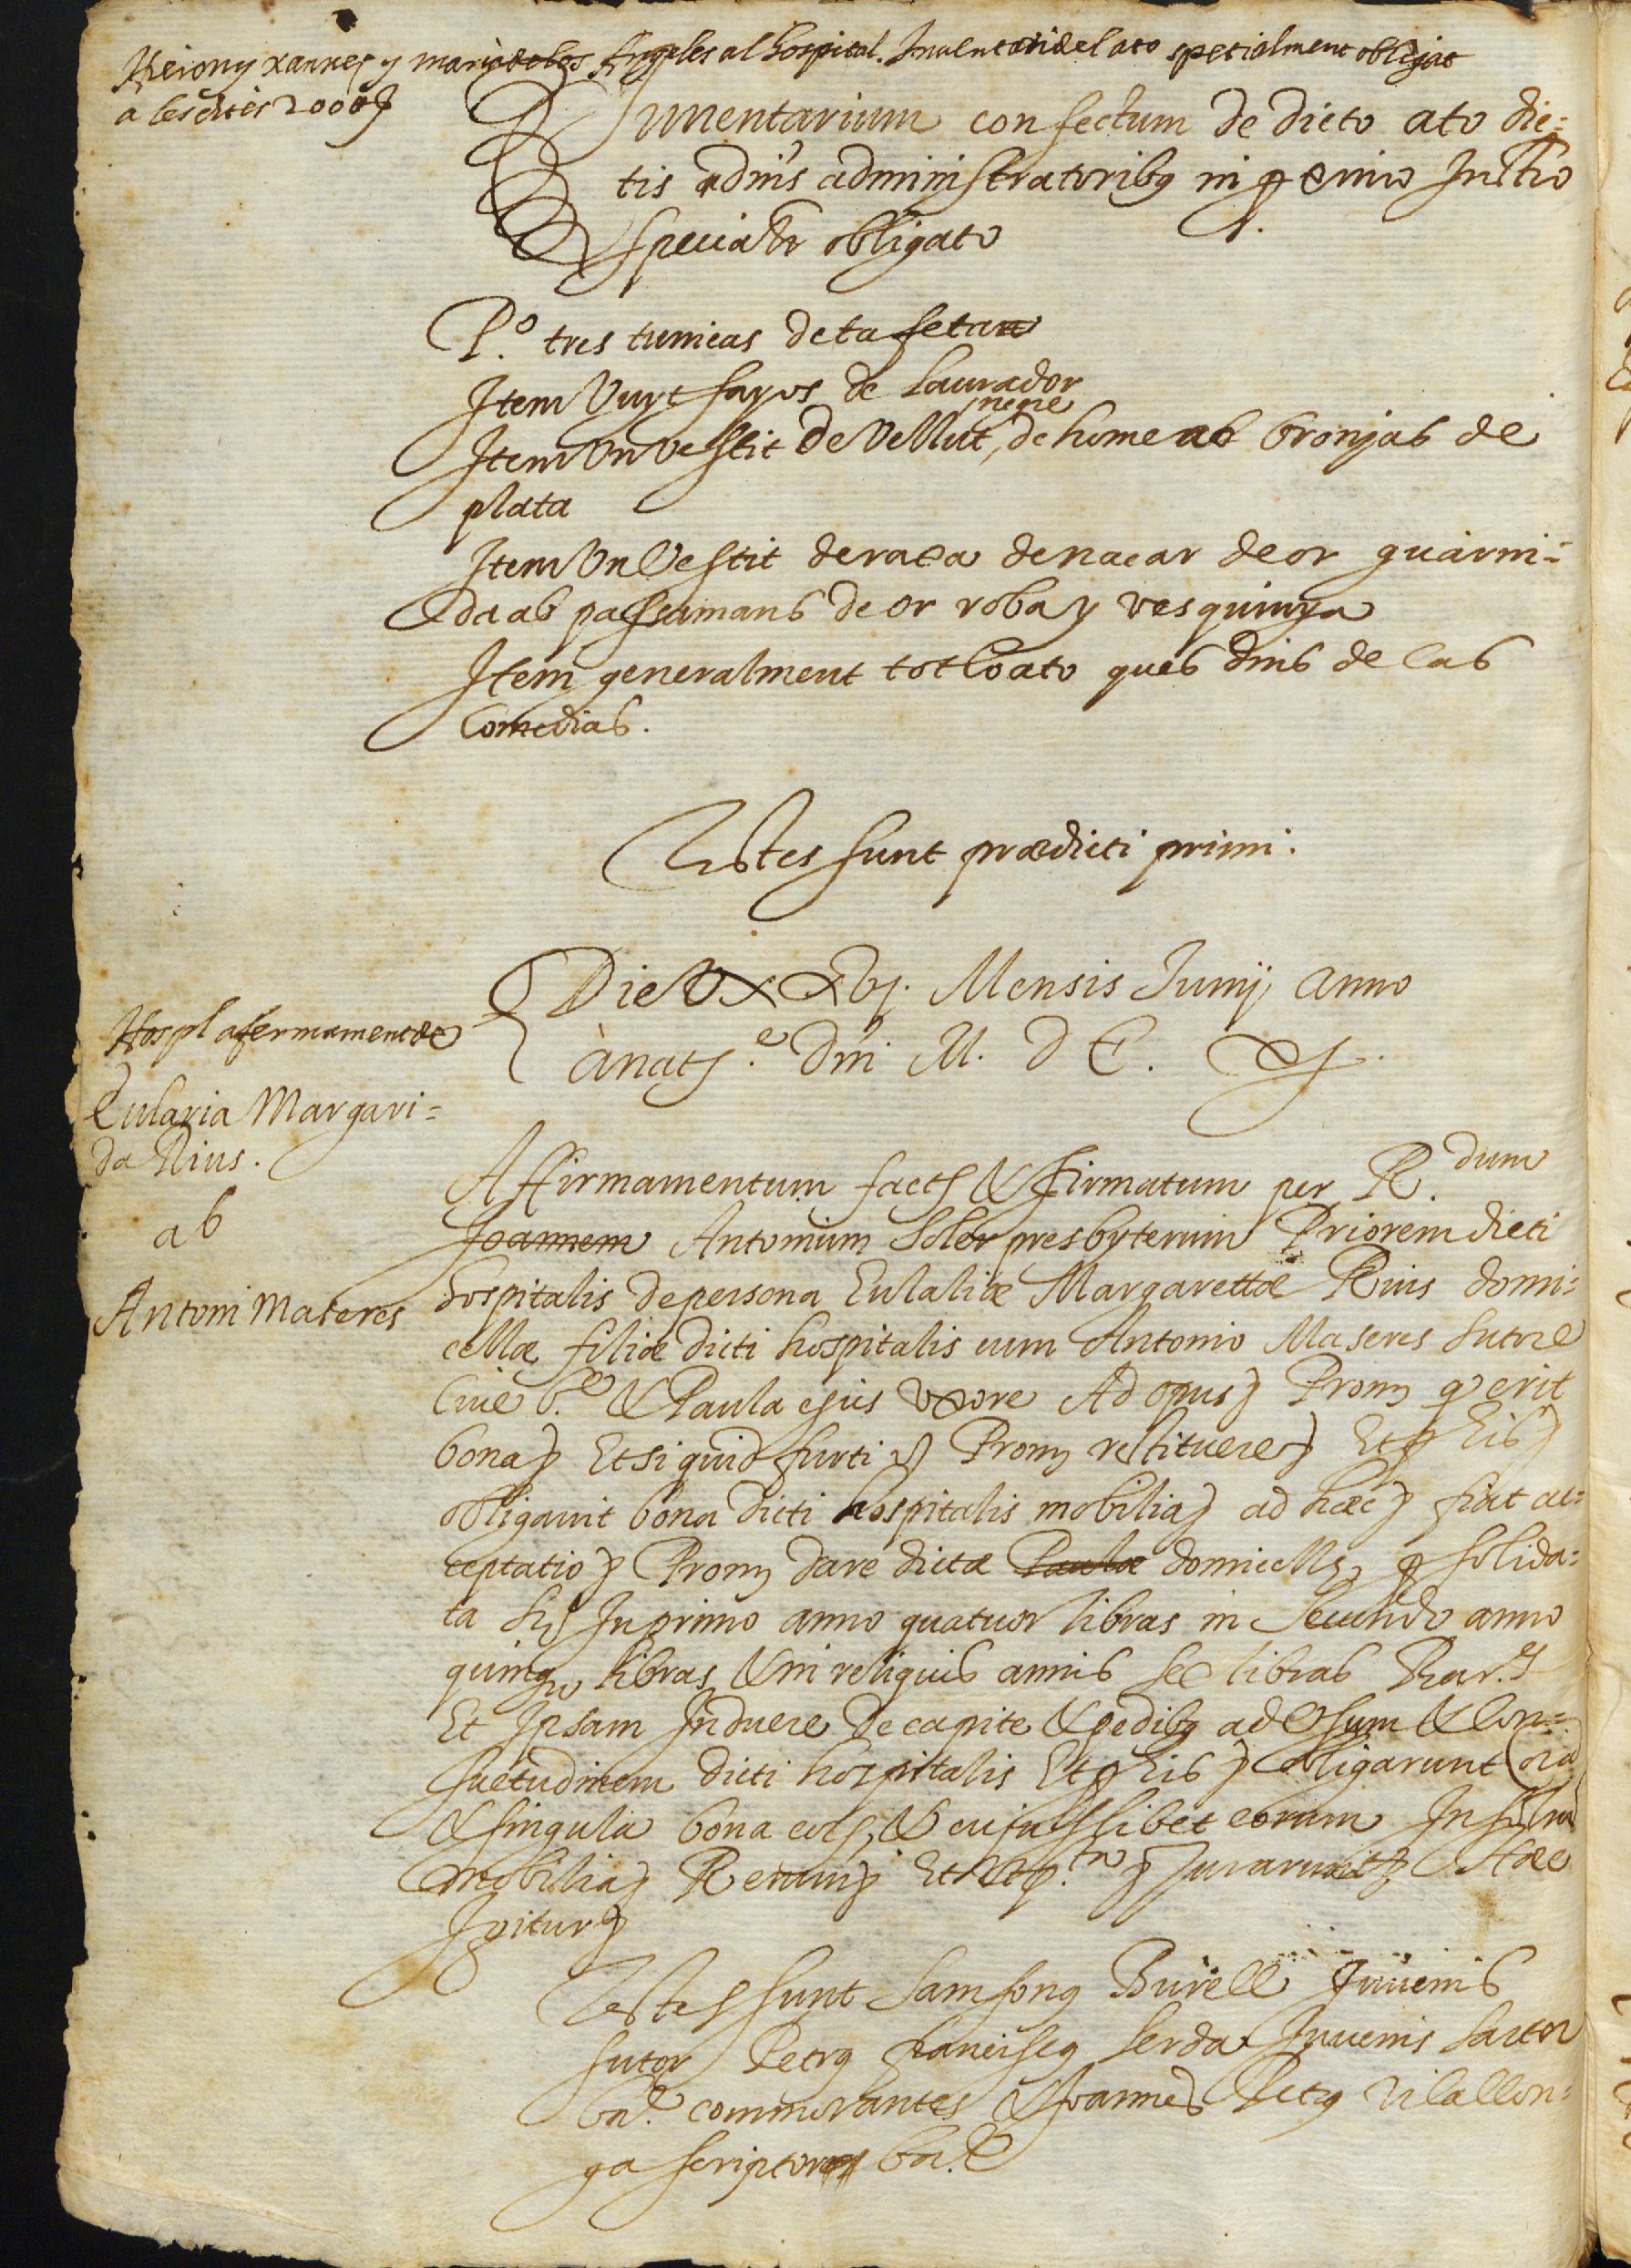 Hierony xannes y maria de los Angeles al hospital. Inventari del ato spetialment obligat
a les dites 2000
Inventarium confectum de dicto ato dic=
tis adm's administratoribus in
specialr obligato
P.º tres tunicas de tafetan
Item Vuyt sayos de laurador
Item Un Vestit de Vellut negre, de home ab bronjas de
plata
Item Un Vestit de rasa de nacar de or guarni=
da ab passamans de or roba y vasquinya
Item generalment tot lo ato ques dins de las
Comedias.
Testes sunt prædicti primi.
Die Mensis Junij anno
a nat.e Dni M. D C.
Hospl afermament de
Eularia Margari=
da Rius.
ab
Antoni Maseres
Affirmamentum fact & firmatum per R.dum
Joannem Antonium Soler presbyterum Priorem dicti
hospitalis de persona Eulaliæ Margarettæ Rius domi=
cellæ filiæ dicti hospitalis cum Antonio Maseres sutore
Cive b.e & Paula ejus uxore Ad opus Prom q erit
bona Et si quid furti Prom restituere Et p his
obligavit bona dicti hospitalis mobilia ad hæc fiat ac=
ceptatio Prom dare dictæ Paulæ domicellæ p solida=
ta In primo anno quatuor libras in secundo anno
quinq libras & in reliquis annis sex libras Bar.es
Et Ipsam Induere de capite & pedibq ad Usum & Con=
suetudinem dicti hospitalis Et p his obligarunt oia
& singula bona eor & cujusslibet eorum In
mobilia Renun Et Jurarunt Hæc
Igitur
Testes sunt Samsonq Burell Juvenis
sutor Petrq Franciscq Serda Juvenis sartor
ba.e commorantes & Joannes Petrq Vilallon=
ga scriptor ba.e